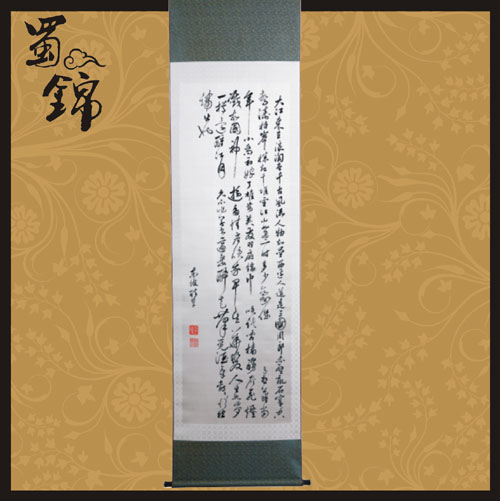 蜀
錦
大江東去浪淘盡千古風流人物故壘西邊人道是三國周郎赤壁亂石穿空
驚濤拍岸捲起千堆雪江山如畫一時多少豪傑 遙想公瑾當
年 小喬初嫁了雄姿英發羽扇綸巾 談笑間檣櫓灰飛煙
滅故國神遊多情應笑我早生華髮人生如夢
一樽還酹江月 久不作草書適乘醉走筆覺酒氣勃勃
指端出也
東坡醉筆